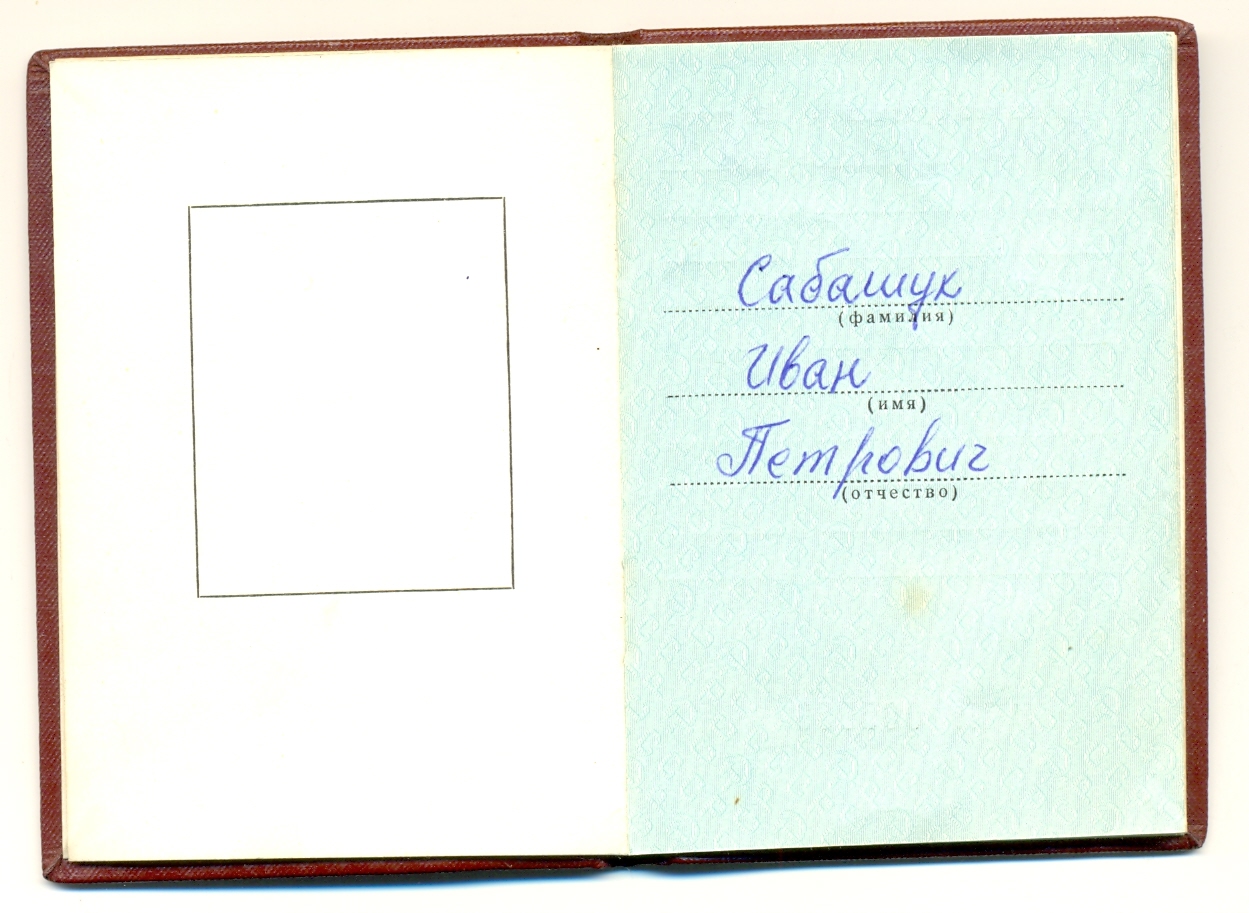 Сабашук
(фамилия)
Иван
(имя)
Петрович
(отчество)